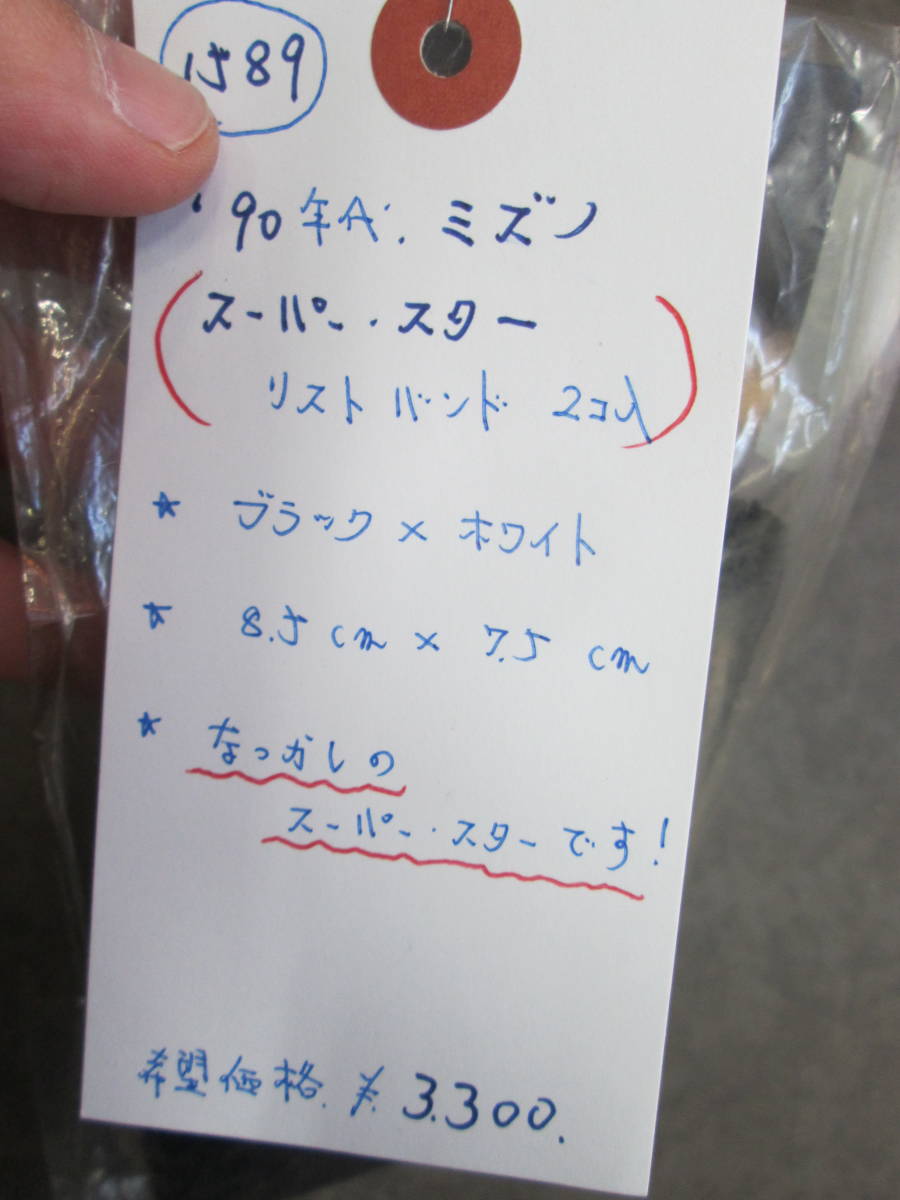 1589
'90年代. ミズノ
スーパー・スター
リストバンド 2コ入
★ ブラック × ホワイト
★ 8.5 cm × 7.5 cm
★ なつかしの
スーパー・スターです!
希望価格. ¥. 3.300.